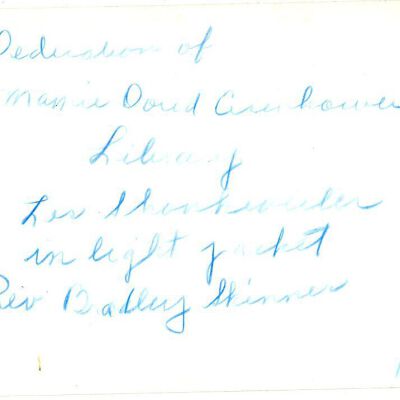 Dedication of
Mamie Doud Eisenhower
Library
Les
in light jacket
Rev Badley Skinner